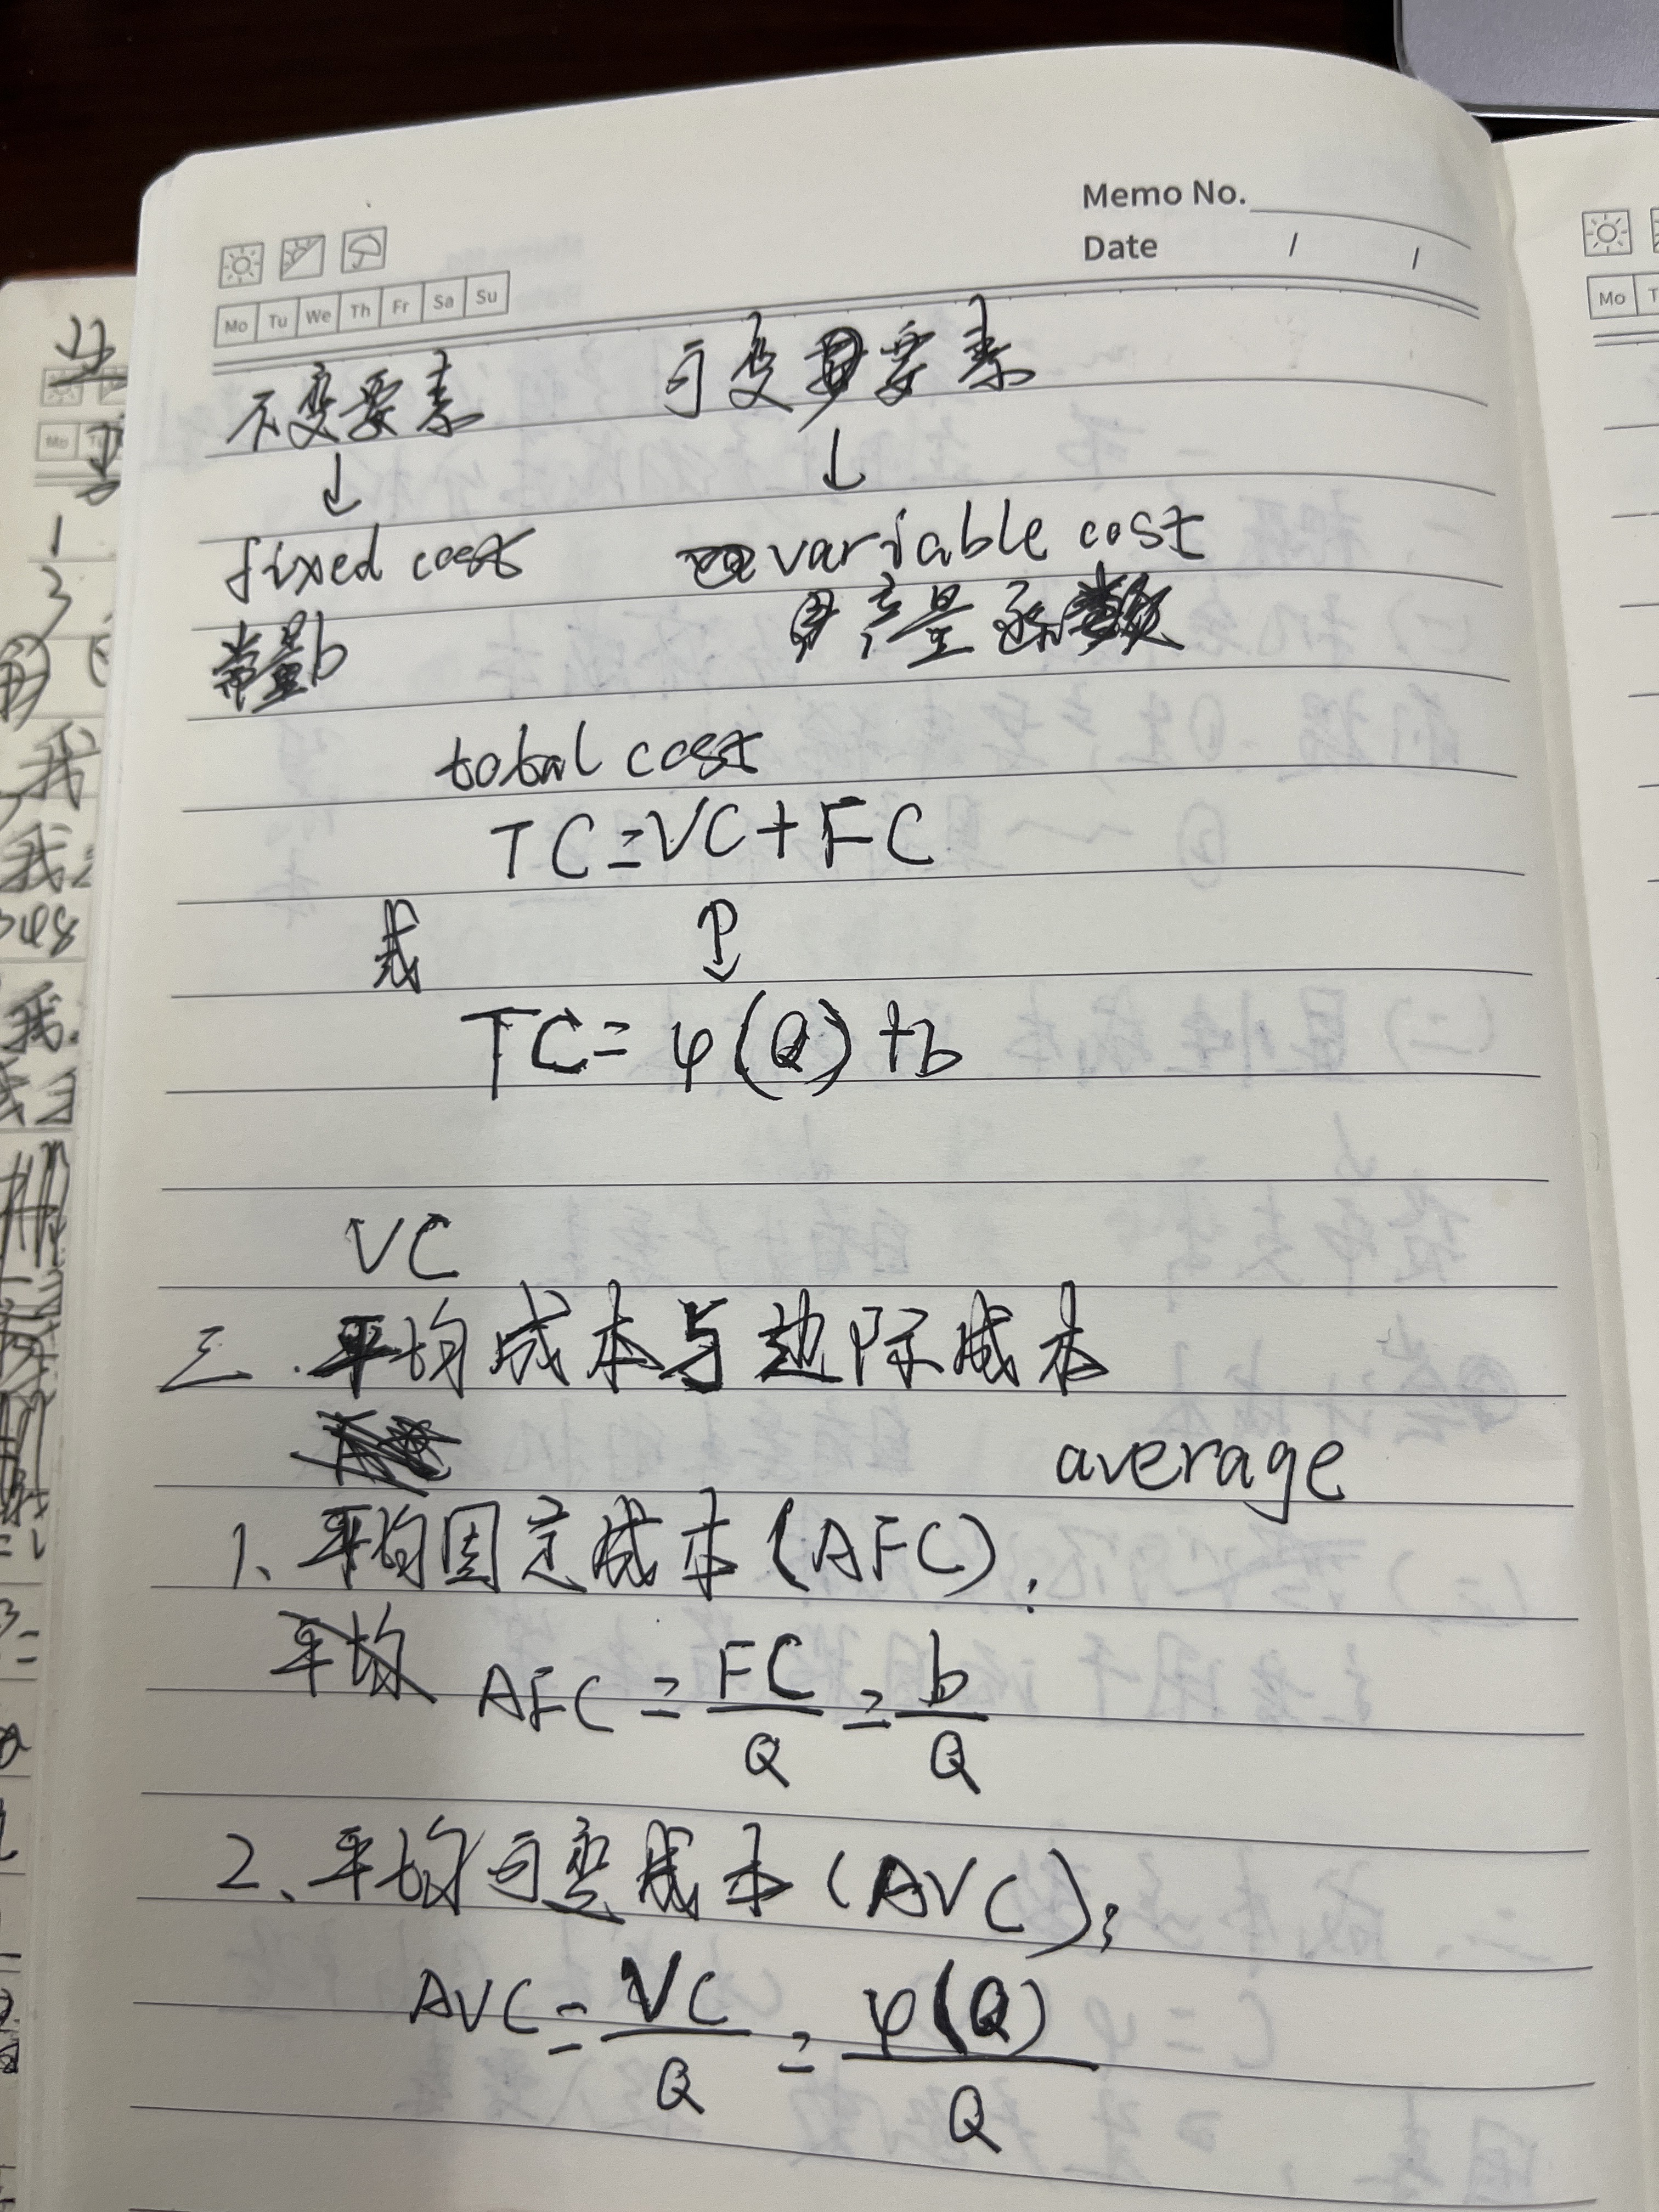 Memo No.
Date / /
Mo Tu We Th Fr Sa Su
不变要素 可变要素
↓ ↓
fixed cost variable cost
常量b 产量函数
total cost
TC=VC+FC
或
TC=φ(Q)+b
VC
三.平均成本与边际成本
average
1、平均固定成本(AFC):
平均 AFC=FC/Q=b/Q
2、平均可变成本(AVC):
AVC=VC/Q=φ(Q)/Q
Mo